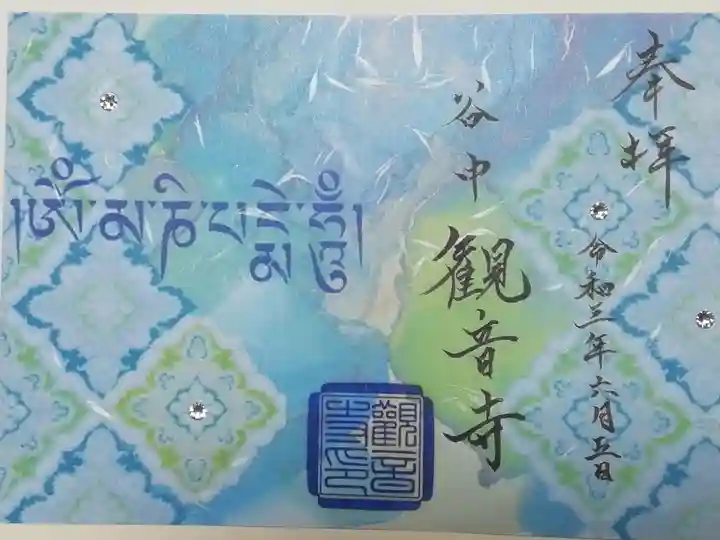 奉拝
令和三年六月五日
谷中
觀音寺
།ༀ་མ་ཎི་པ་དྨེ་ཧཱུྃ།
觀音
寺印